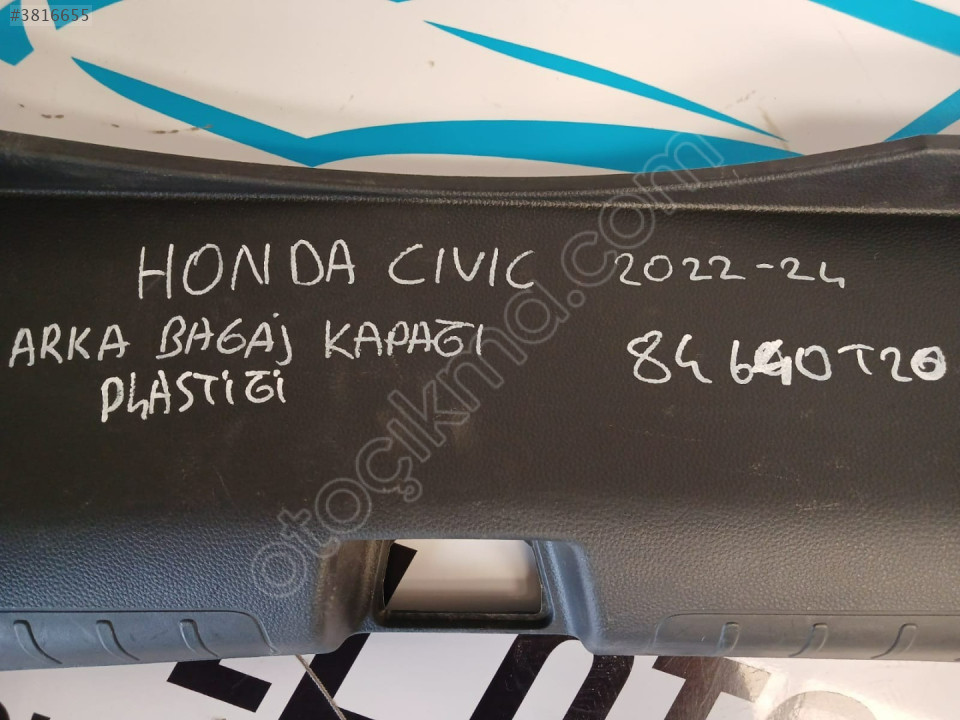 #3816655
HONDA CIVIC 2022-24
ARKA BAGAJ KAPAĞI
PLASTİĞİ
84640T20
otoçıkma.com